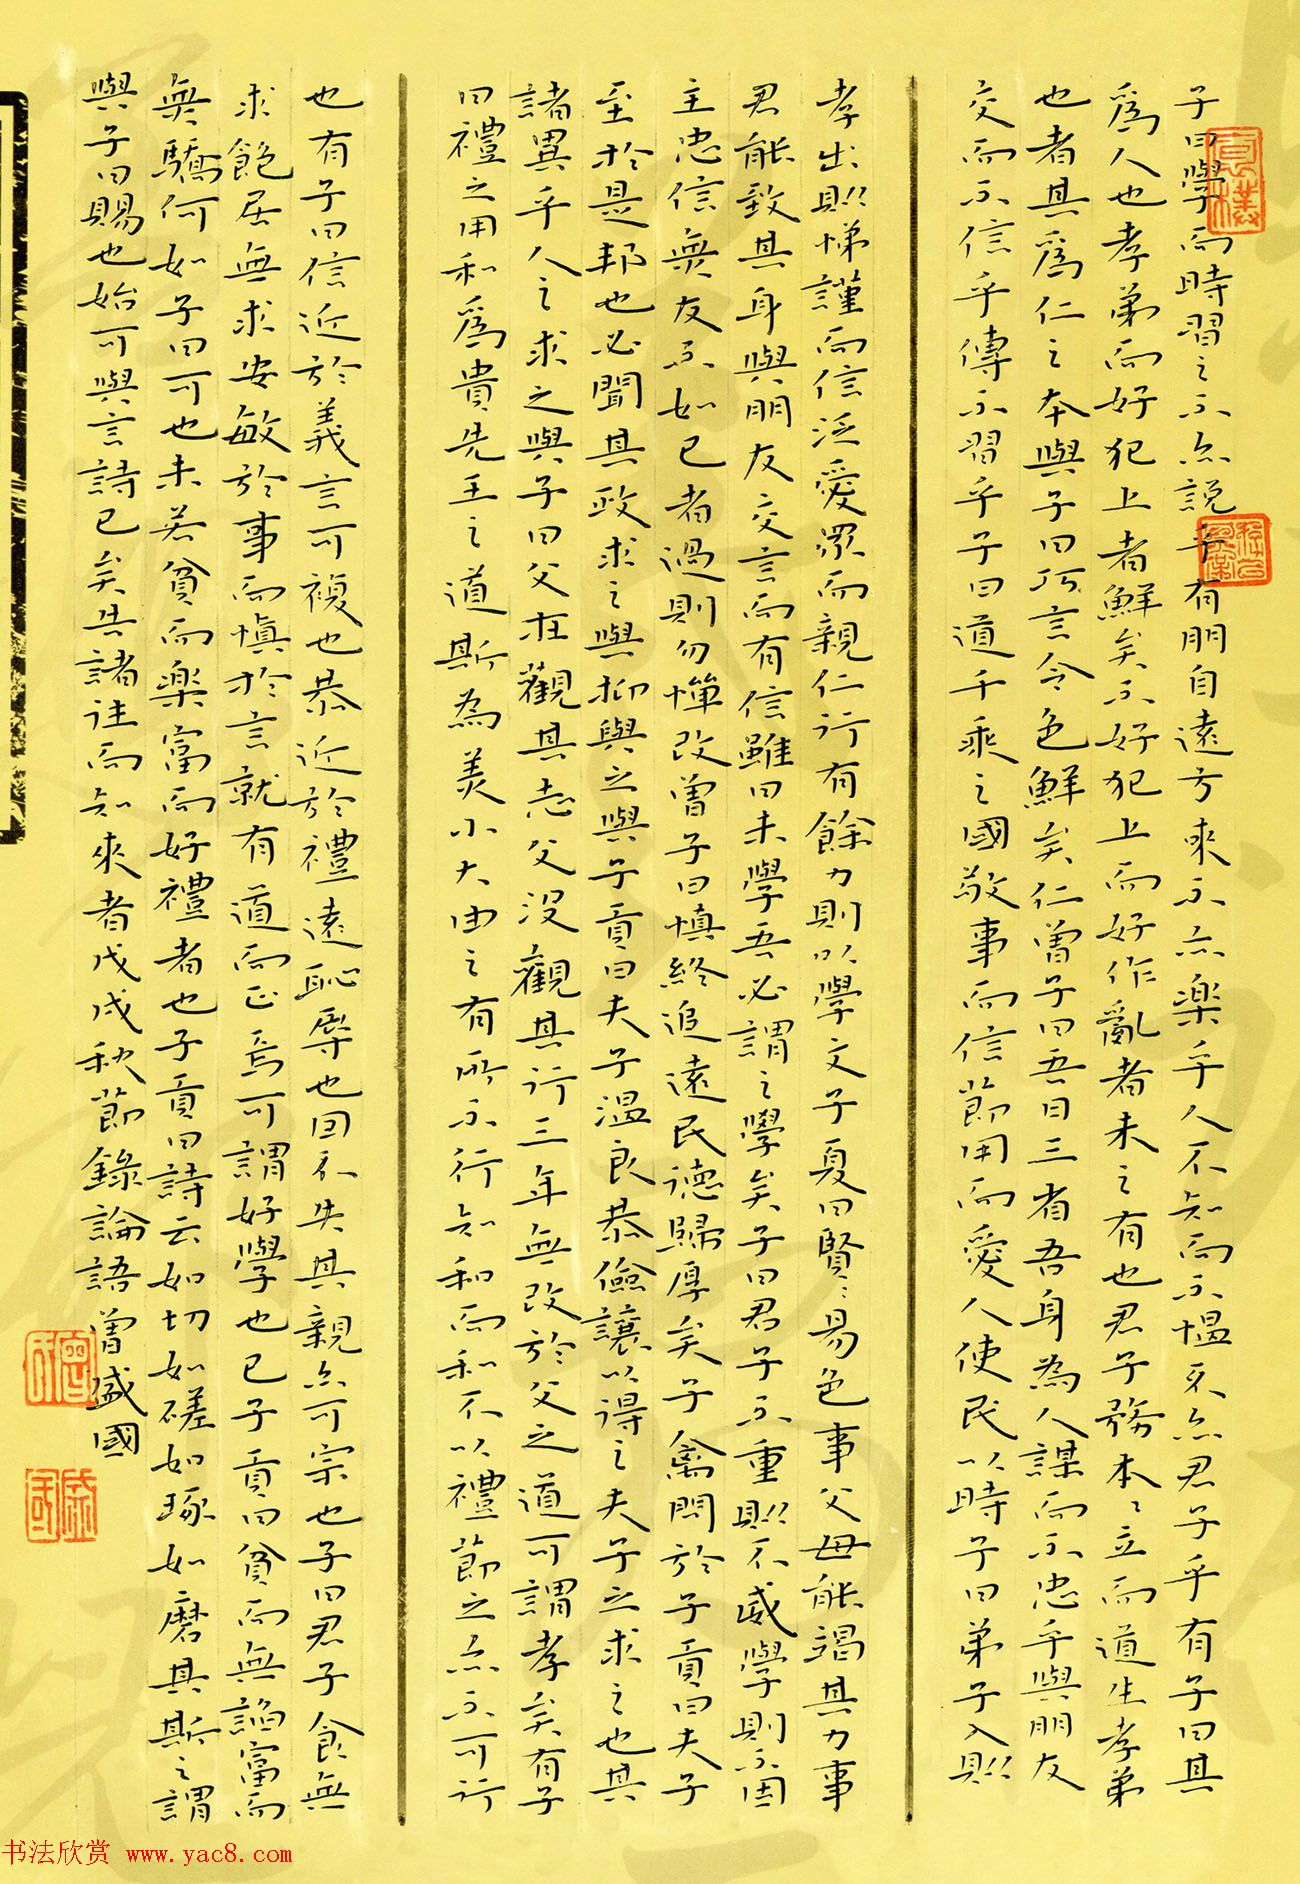 子曰學而時習之不亦説乎有朋自遠方來不亦樂乎人不知而不愠不亦君子乎有子曰其
爲人也孝弟而好犯上者鮮矣不好犯上而好作亂者未之有也君子務本〻立而道生孝弟
也者其爲仁之本與子曰巧言令色鮮矣仁曾子曰吾日三省吾身為人謀而不忠乎與朋友
交而不信乎傳不習乎子曰道千乘之國敬事而信節用而愛人使民以時子曰弟子入則
孝出則悌謹而信泛愛眾而親仁行有餘力則以學文子夏曰賢〻易色事父母能竭其力事
君能致其身與朋友交言而有信雖曰未學吾必謂之學矣子曰君子不重則不威學則不固
主忠信無友不如已者過則勿憚改曾子曰慎終追遠民德歸厚矣子禽問於子貢曰夫子
至於是邦也必聞其政求之與抑與之與子貢曰夫子溫良恭儉讓以得之夫子之求之也其
諸異乎人之求之與子曰父在觀其志父没觀其行三年無改於父之道可謂孝矣有子
曰禮之用和爲貴先王之道斯為美小大由之有所不行知和而和不以禮節之亦不可行
也有子曰信近於義言可複也恭近於禮遠恥辱也因不失其親亦可宗也子曰君子食無
求飽居無求安敏於事而慎於言就有道而正焉可謂好學也已子貢曰貧而無諂富而
無驕何如子曰可也未若貧而樂富而好禮者也子貢曰詩云如切如磋如琢如磨其斯之謂
與子曰賜也始可與言詩已矣告諸往而知來者戊戌秋節錄論語曾盛國
曾印
盛國
书法欣赏 www.yac8.com